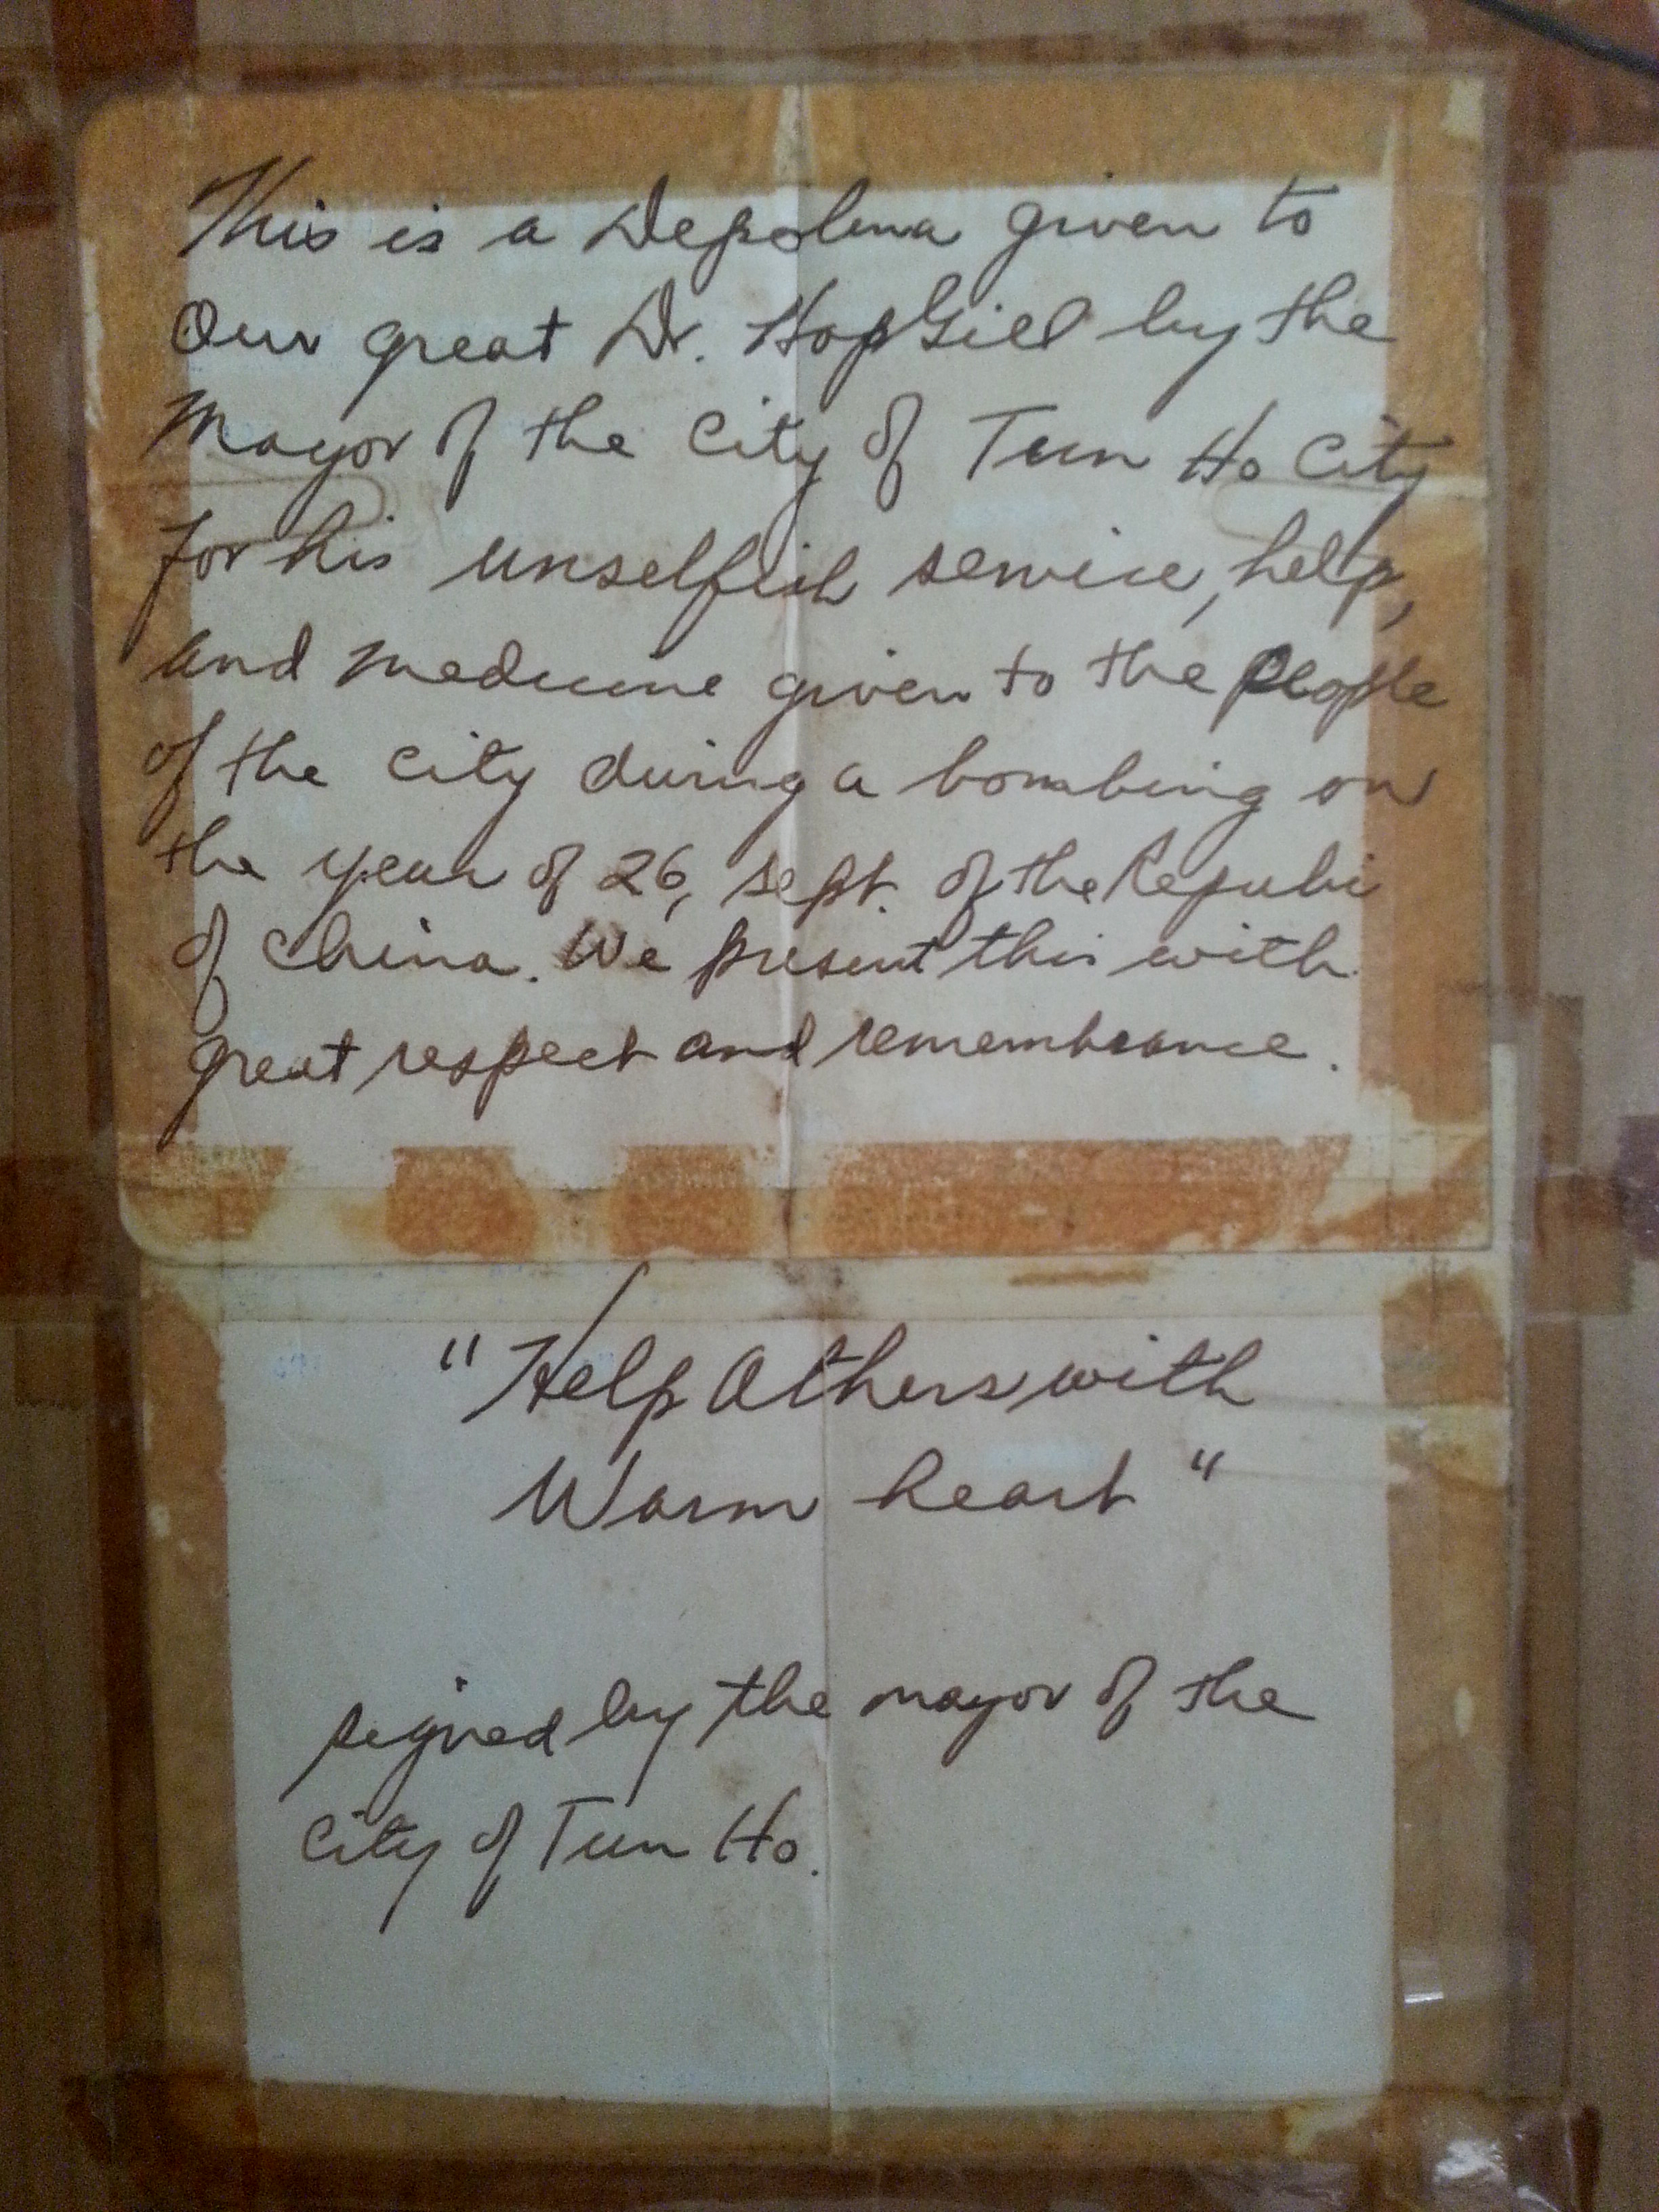 This is a Depolma given to
Our great Dr. Hop Giel by the
Mayor of the City of Tun Ho City
for his unselfish service, help,
and medicine given to the people
of the City during a bombing on
the year of 26, sept. of the Republi
of China. We present this with
great respect and remembrance.
"Help Others with
Warm heart"
signed by the mayor of the
City of Tun Ho.